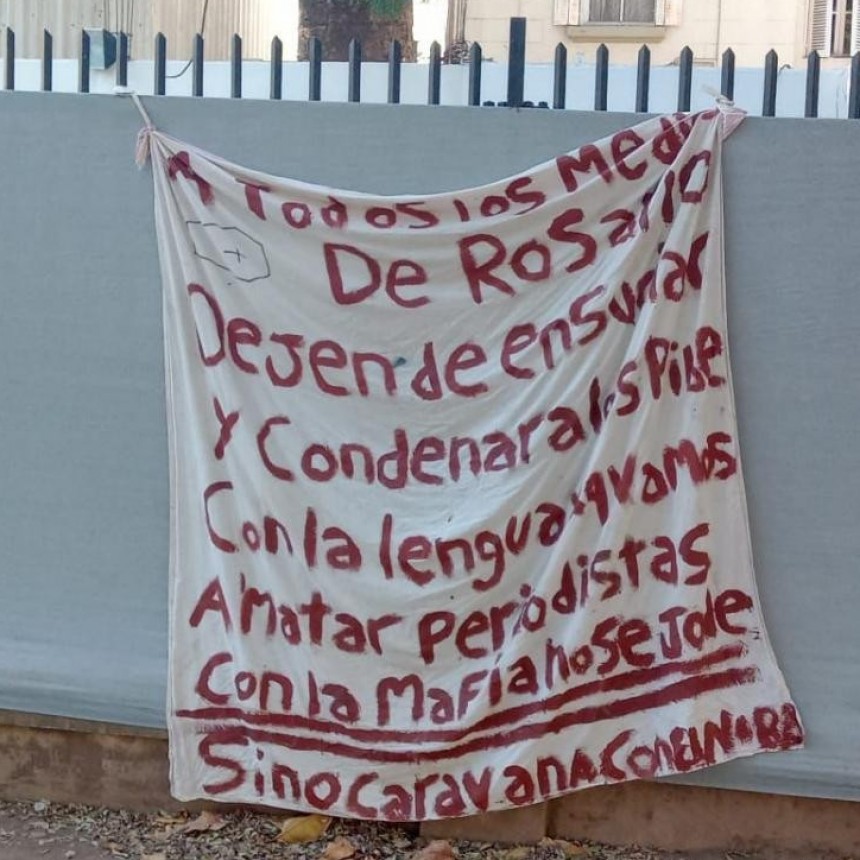 A Todos los Medio
De Rosario
Dejen de ensuciar
y Condenar a los Pibe
Con la lengua qvamos
A Matar Periodistas
Con la Mafia no se Jode
Sino Caravana Con